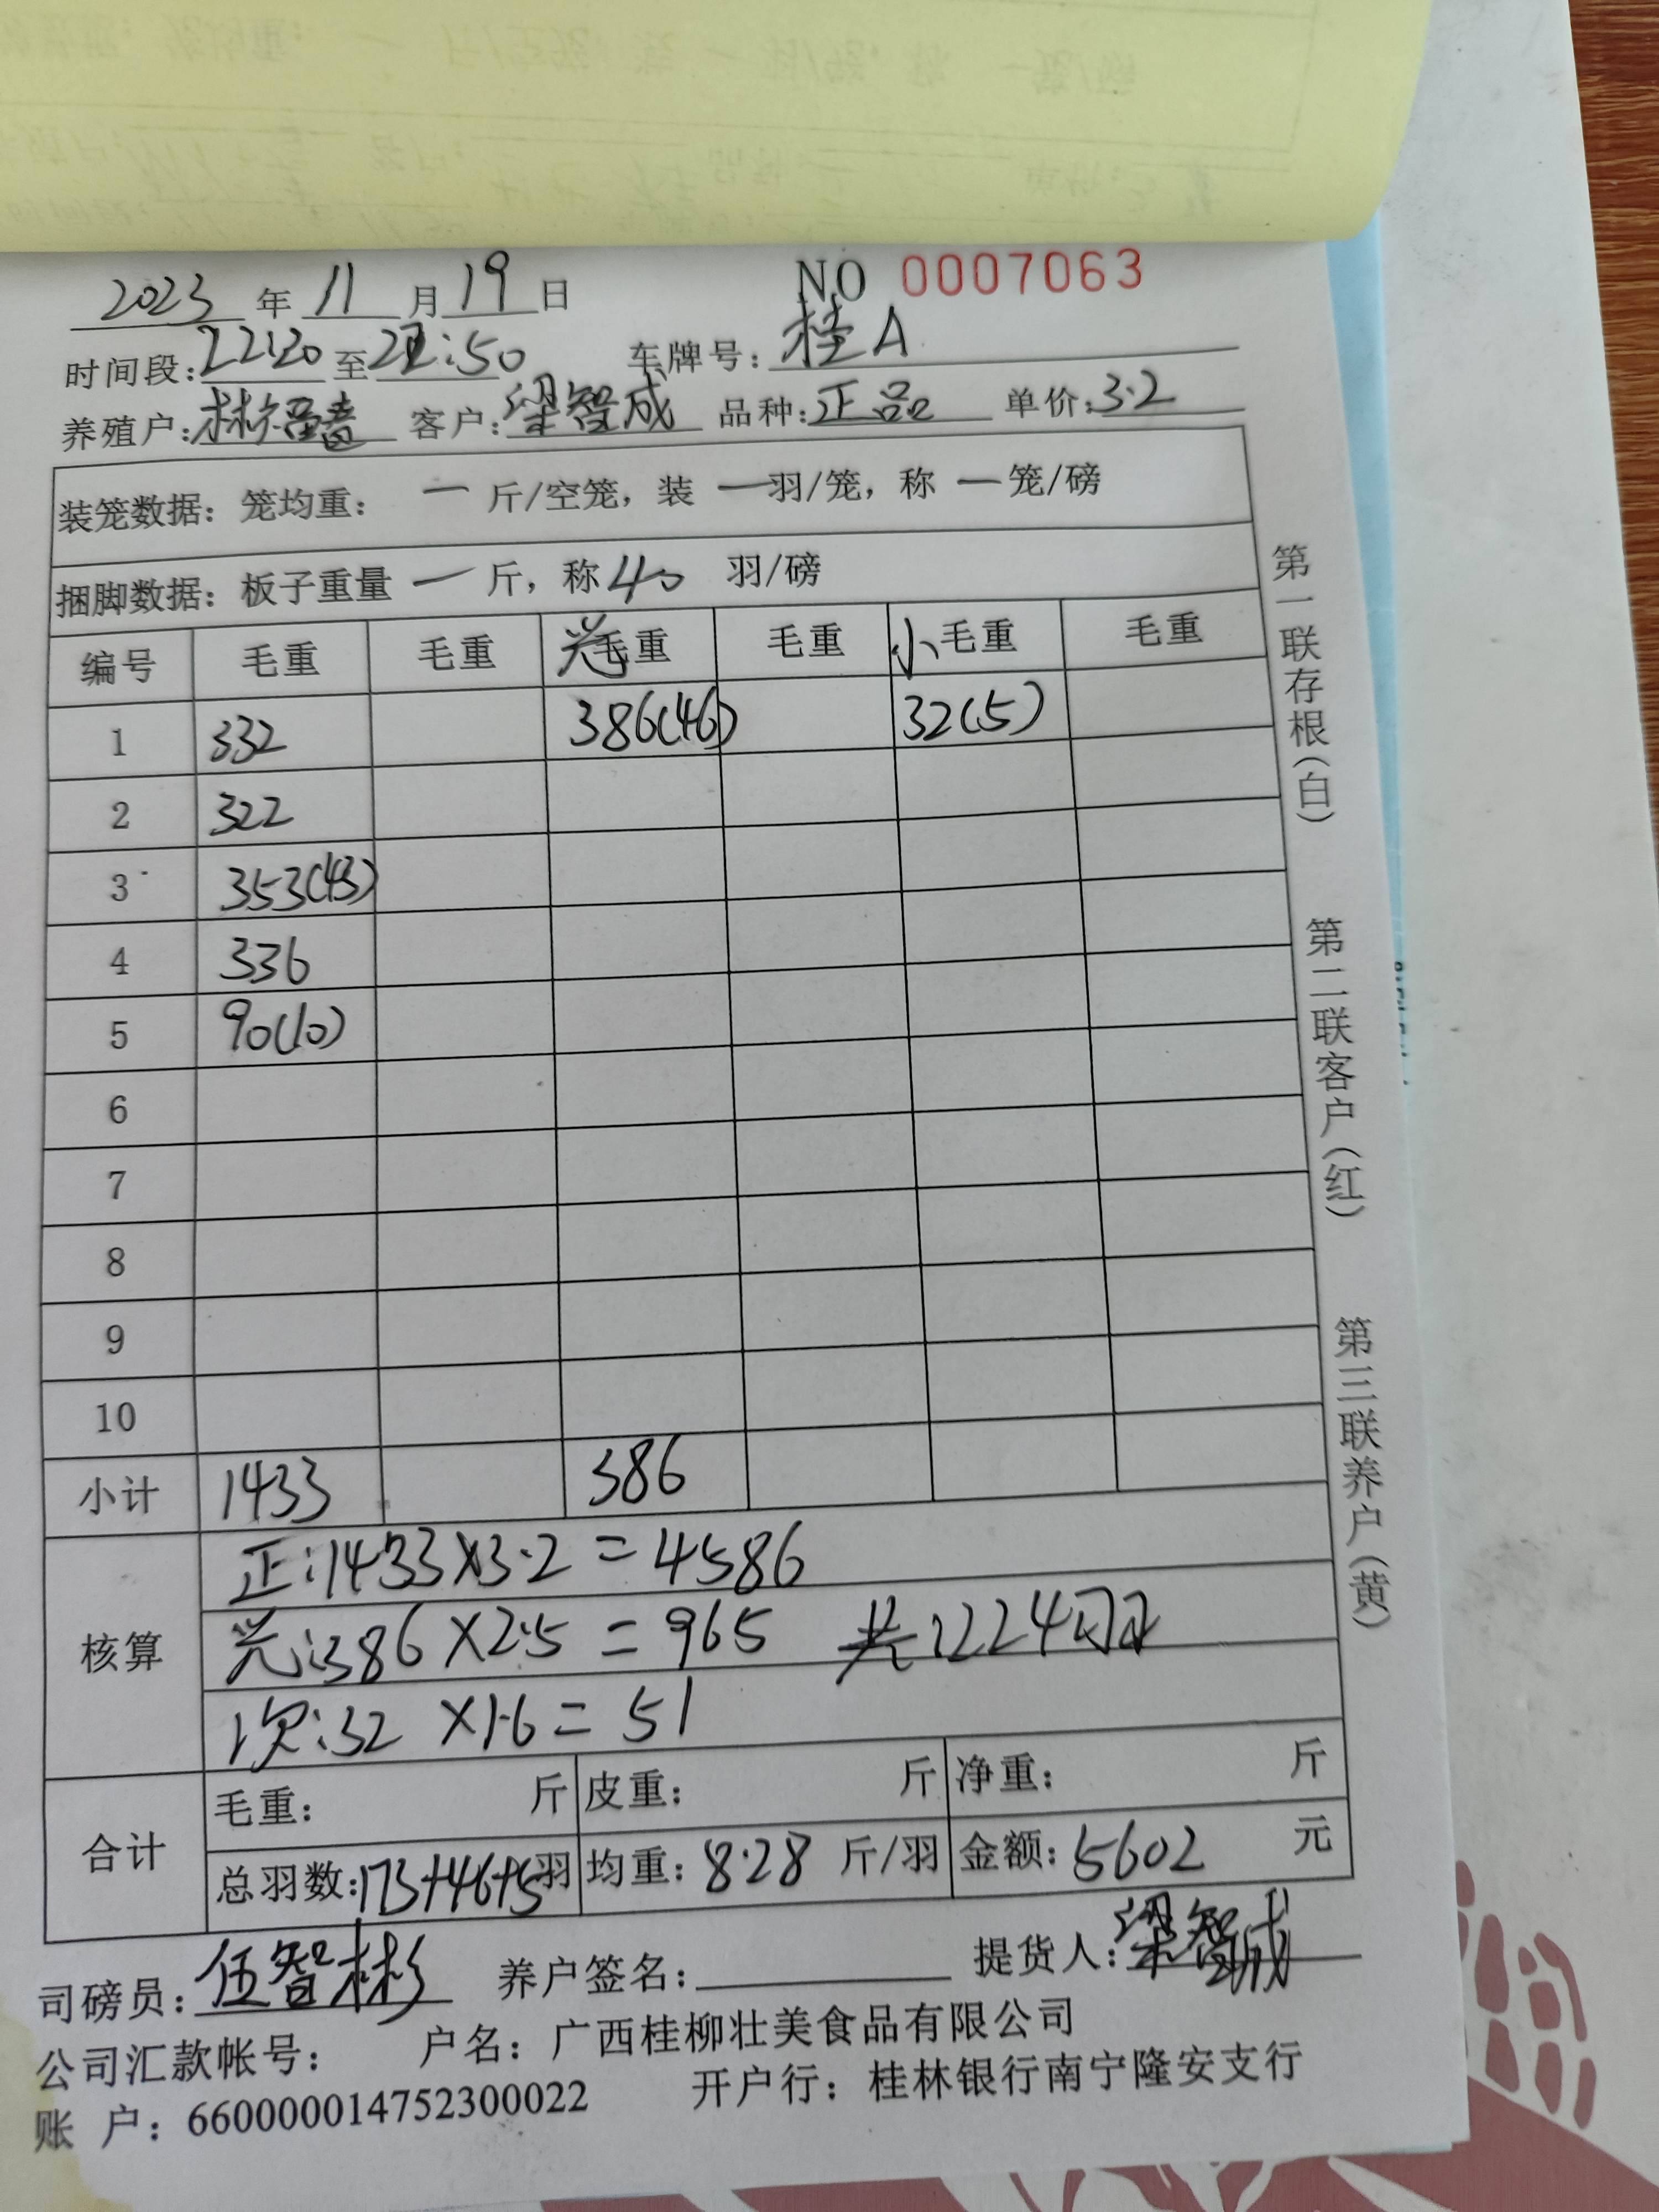 2023年11月19日 NO 0007063
时间段:22:20至22:50 车牌号:桂A
养殖户: 客户:梁智成 品种:正品 单价:3.2
装笼数据：笼均重：一斤/空笼，装一羽/笼，称一笼/磅
捆脚数据：板子重量一斤，称40羽/磅
编号 毛重 毛重 光毛重 毛重 小毛重 毛重
1 332 386(46) 32(5)
2 322
3 353(43)
4 336
5 90(10)
6
7
8
9
10
小计 1433 386
核算
正:1433×3.2=4586
光:386×2.5=965 共:224羽
次:32×1.6=51
合计
毛重： 斤 皮重： 斤 净重： 斤
总羽数:173+46+5羽 均重:8.28斤/羽 金额:5602元
司磅员:伍智彬 养户签名: 提货人:梁智成
公司汇款帐号： 户名：广西桂柳壮美食品有限公司
账 户：660000014752300022 开户行：桂林银行南宁隆安支行
第一联存根(白)
第二联客户(红)
第三联养户(黄)